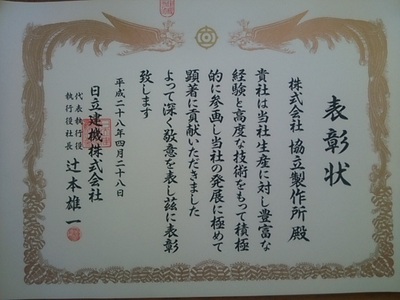 表彰状
株式会社 協立製作所 殿
貴社は当社生産に対し豊富な
経験と高度な技術をもって積極
的に参画し当社の発展に極めて
顕著に貢献いただきました
よって深く敬意を表し茲に表彰
致します
平成二十八年四月二十八日
日立建機株式会社
代表執行役
執行役社長
辻本雄一